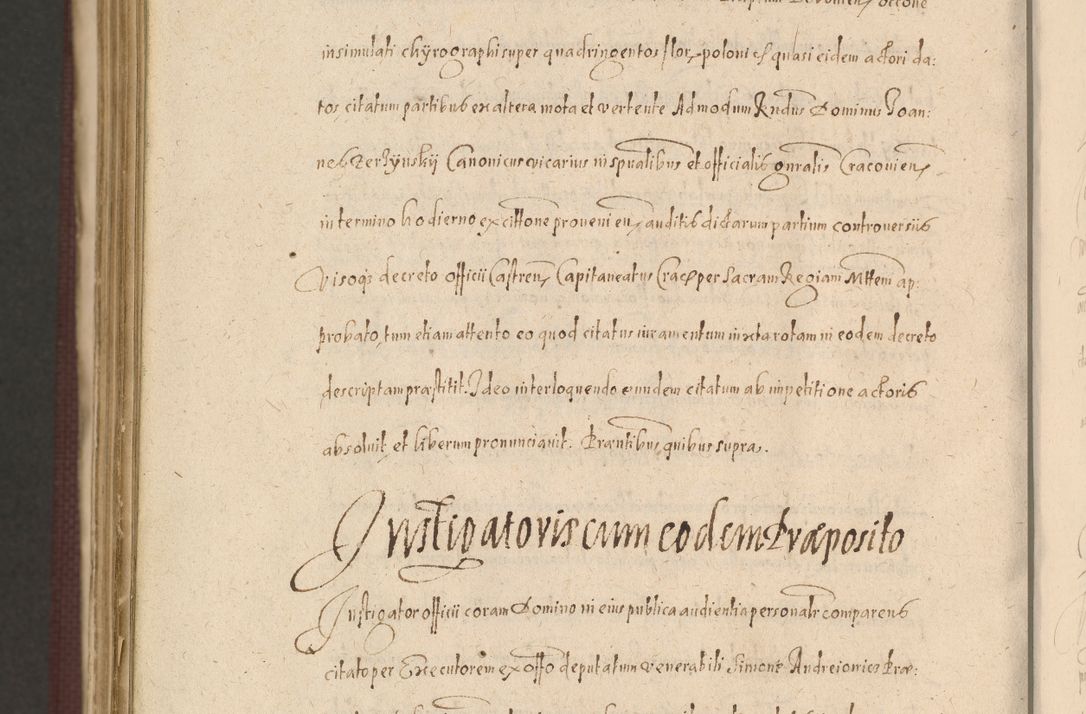 insimulati chyrographi super quadringentos flor. poloni es quasi eidem actori da:
tos citatum partibus ex altera mota et vertente Admodum Rndus Dominus Joan:
nes Zerzynskij Canonicus vicarius in spualibus et officialis gnralis Cracovien
in termino hodierno ex cittone provenien auditis dictarum partium controversiis
Visoqs decreto officii Castren Capitaneatus Crac per Sacram Regiam Mttem ap:
probato, tum etiam attento eo quod citatus iuramentum iuxta rotam in eodem decreto
descriptam præstitit. Ideo interloquendo eundem citatum ab impetitione actoris
absoluit et liberum pronunciauit. Præntibus quibus supra.
Instigatoris cum eodem Præposito
Instigator officii coram Domino in eius publica audientia personalr comparens
citato per Executorem ex offo deputatum venerabili Simone Andreiouicz Præ: